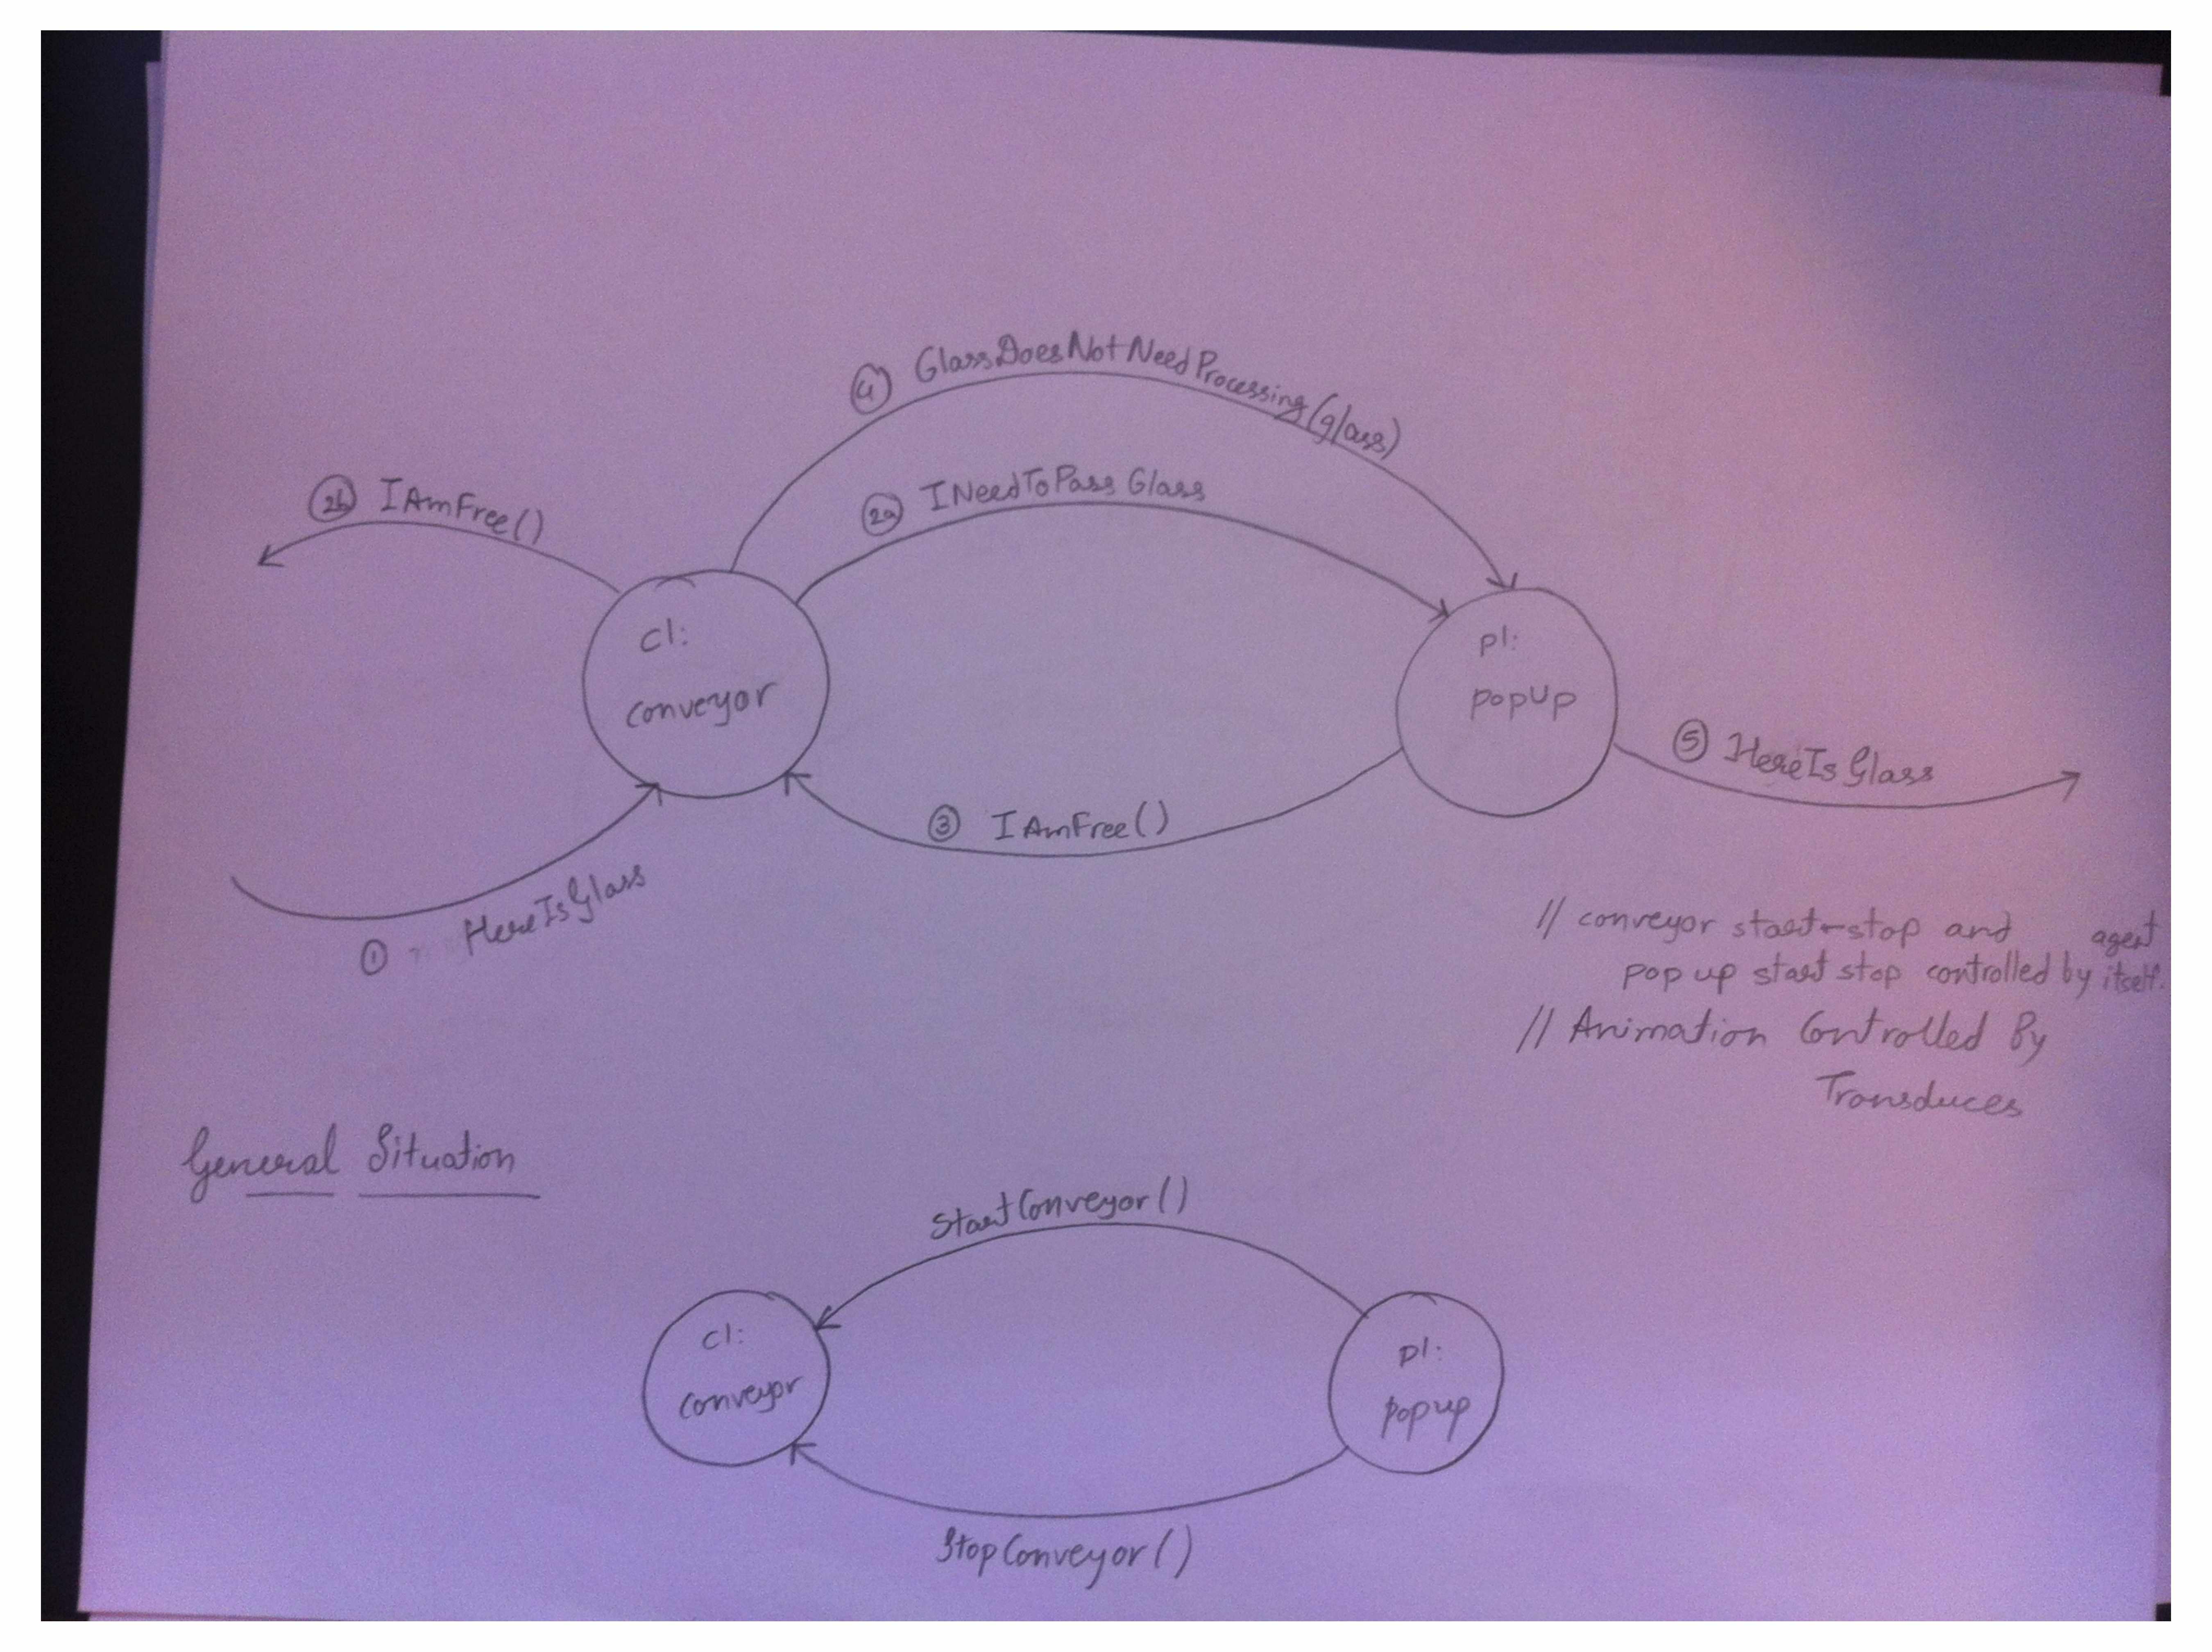 ④ GlassDoesNotNeedProcessing(glass)
2a INeedToPassGlass
2b IAmFree()
c1:
conveyor
p1:
popUp
⑤ HereIsGlass
③ IAmFree()
① HereIsGlass
// conveyor start-stop and agent
pop up start stop controlled by itself.
// Animation Controlled By
Transducer
General Situation
StartConveyor()
c1:
conveyor
p1:
popup
StopConveyor()